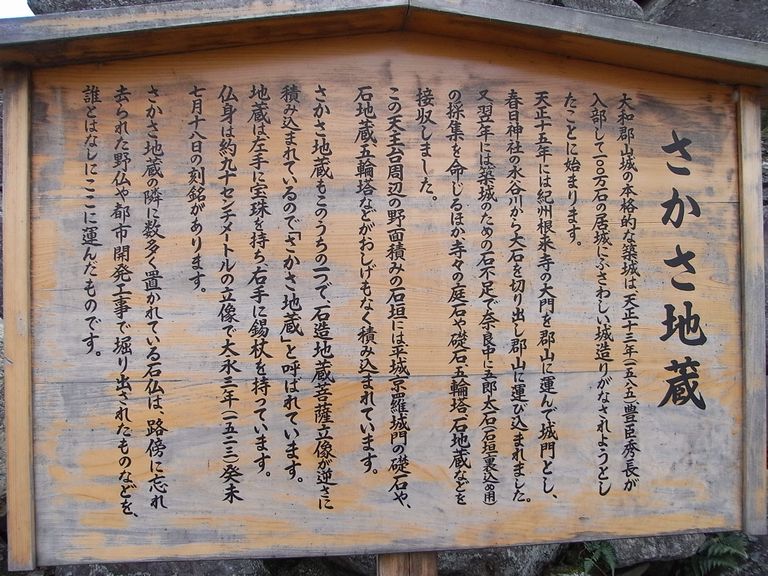 さかさ地蔵
大和郡山城の本格的な築城は、天正十三年(一五八五)豊臣秀長が
入部して一〇〇万石の居城にふさわしい城造りがなされようとし
たことに始まります。
天正十五年には紀州根来寺の大門を郡山に運んで城門とし、
春日神社の水谷川から大石を切り出し郡山に運び込まれました。
又翌年には築城のための石不足で奈良中に五郎太石(石垣裏込め用)
の採集を命じるほか、寺々の庭石や礎石、五輪塔、石地蔵などを
接収しました。
この天主台周辺の野面積みの石垣には平城京羅城門の礎石や、
石地蔵、五輪塔などがおしげもなく積み込まれています。
さかさ地蔵もこのうちの一つで、石造地蔵菩薩立像が逆さに
積み込まれているので「さかさ地蔵」と呼ばれています。
地蔵は左手に宝珠を持ち、右手に錫杖を持っています。
仏身は約九十センチメートルの立像で大永三年(一五二三)癸未
七月十八日の刻銘があります。
さかさ地蔵の隣に数多く置かれている石仏は、路傍に忘れ
去られた野仏や都市開発工事で堀り出されたものなどを、
誰とはなしにここに運んだものです。